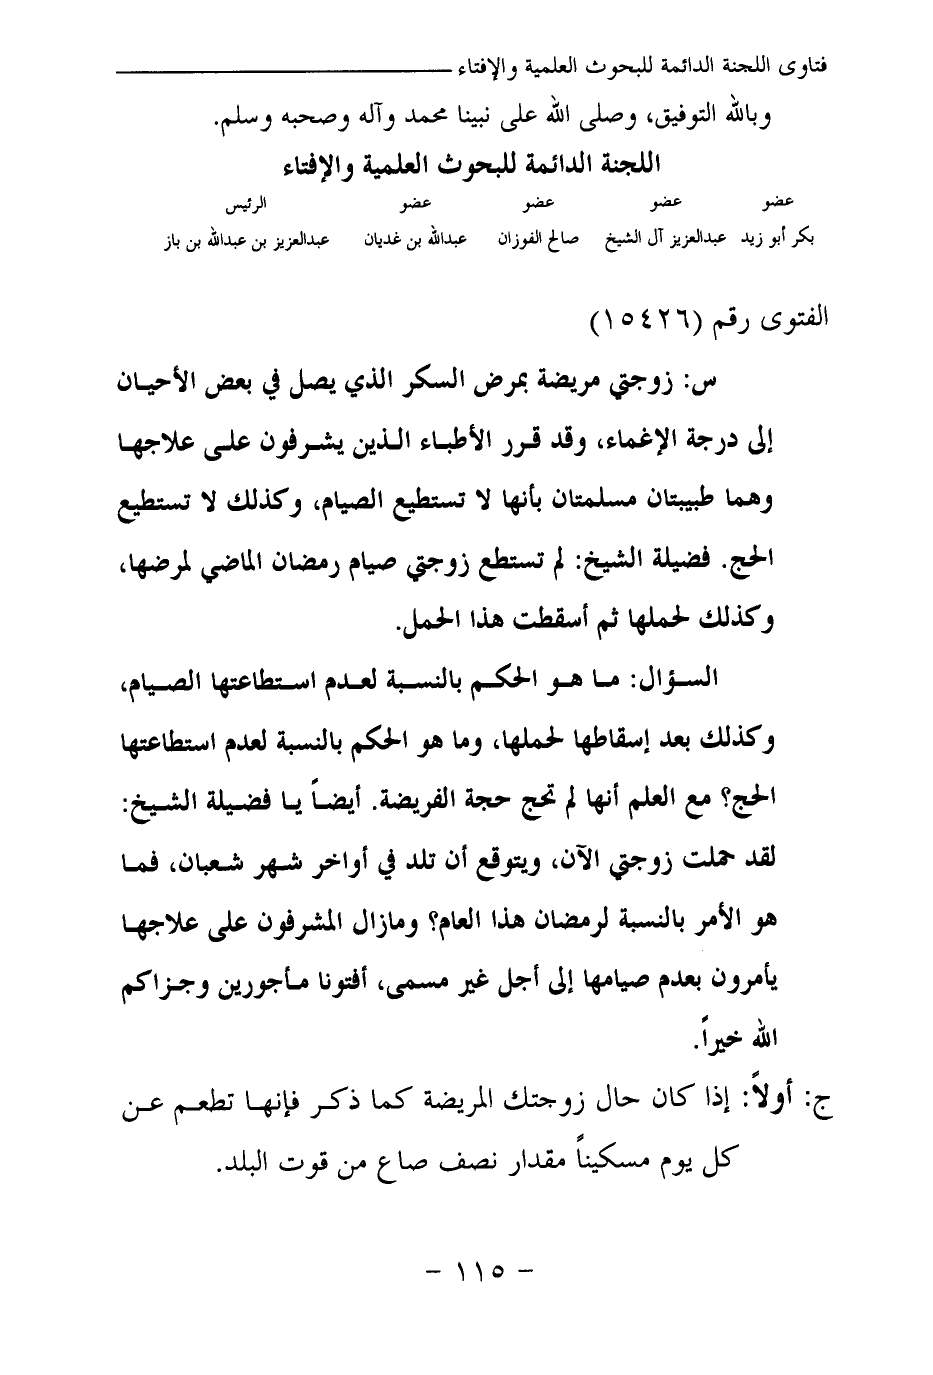 فتاوى اللجنة الدائمة للبحوث العلمية والإفتاء
وبالله التوفيق، وصلى الله على نبينا محمد وآله وصحبه وسلم.
اللجنة الدائمة للبحوث العلمية والإفتاء
عضو عضو عضو عضو الرئيس
بكر أبو زيد عبدالعزيز آل الشيخ صالح الفوزان عبدالله بن غديان عبدالعزيز بن عبدالله بن باز
الفتوى رقم (١٥٤٢٦)
س: زوجتي مريضة بمرض السكر الذي يصل في بعض الأحيان
إلى درجة الإغماء، وقد قرر الأطباء الذين يشرفون على علاجها
وهما طبيبتان مسلمتان بأنها لا تستطيع الصيام، وكذلك لا تستطيع
الحج. فضيلة الشيخ: لم تستطع زوجتي صيام رمضان الماضي لمرضها،
وكذلك لحملها ثم أسقطت هذا الحمل.
السؤال: ما هو الحكم بالنسبة لعدم استطاعتها الصيام،
وكذلك بعد إسقاطها لحملها، وما هو الحكم بالنسبة لعدم استطاعتها
الحج؟ مع العلم أنها لم تحج حجة الفريضة. أيضاً يا فضيلة الشيخ:
لقد حملت زوجتي الآن، ويتوقع أن تلد في أواخر شهر شعبان، فما
هو الأمر بالنسبة لرمضان هذا العام؟ ومازال المشرفون على علاجها
يأمرون بعدم صيامها إلى أجل غير مسمى، أفتونا مأجورين وجزاكم
الله خيراً.
ج: أولاً: إذا كان حال زوجتك المريضة كما ذكر فإنها تطعم عن
كل يوم مسكيناً مقدار نصف صاع من قوت البلد.
- ١١٥ -